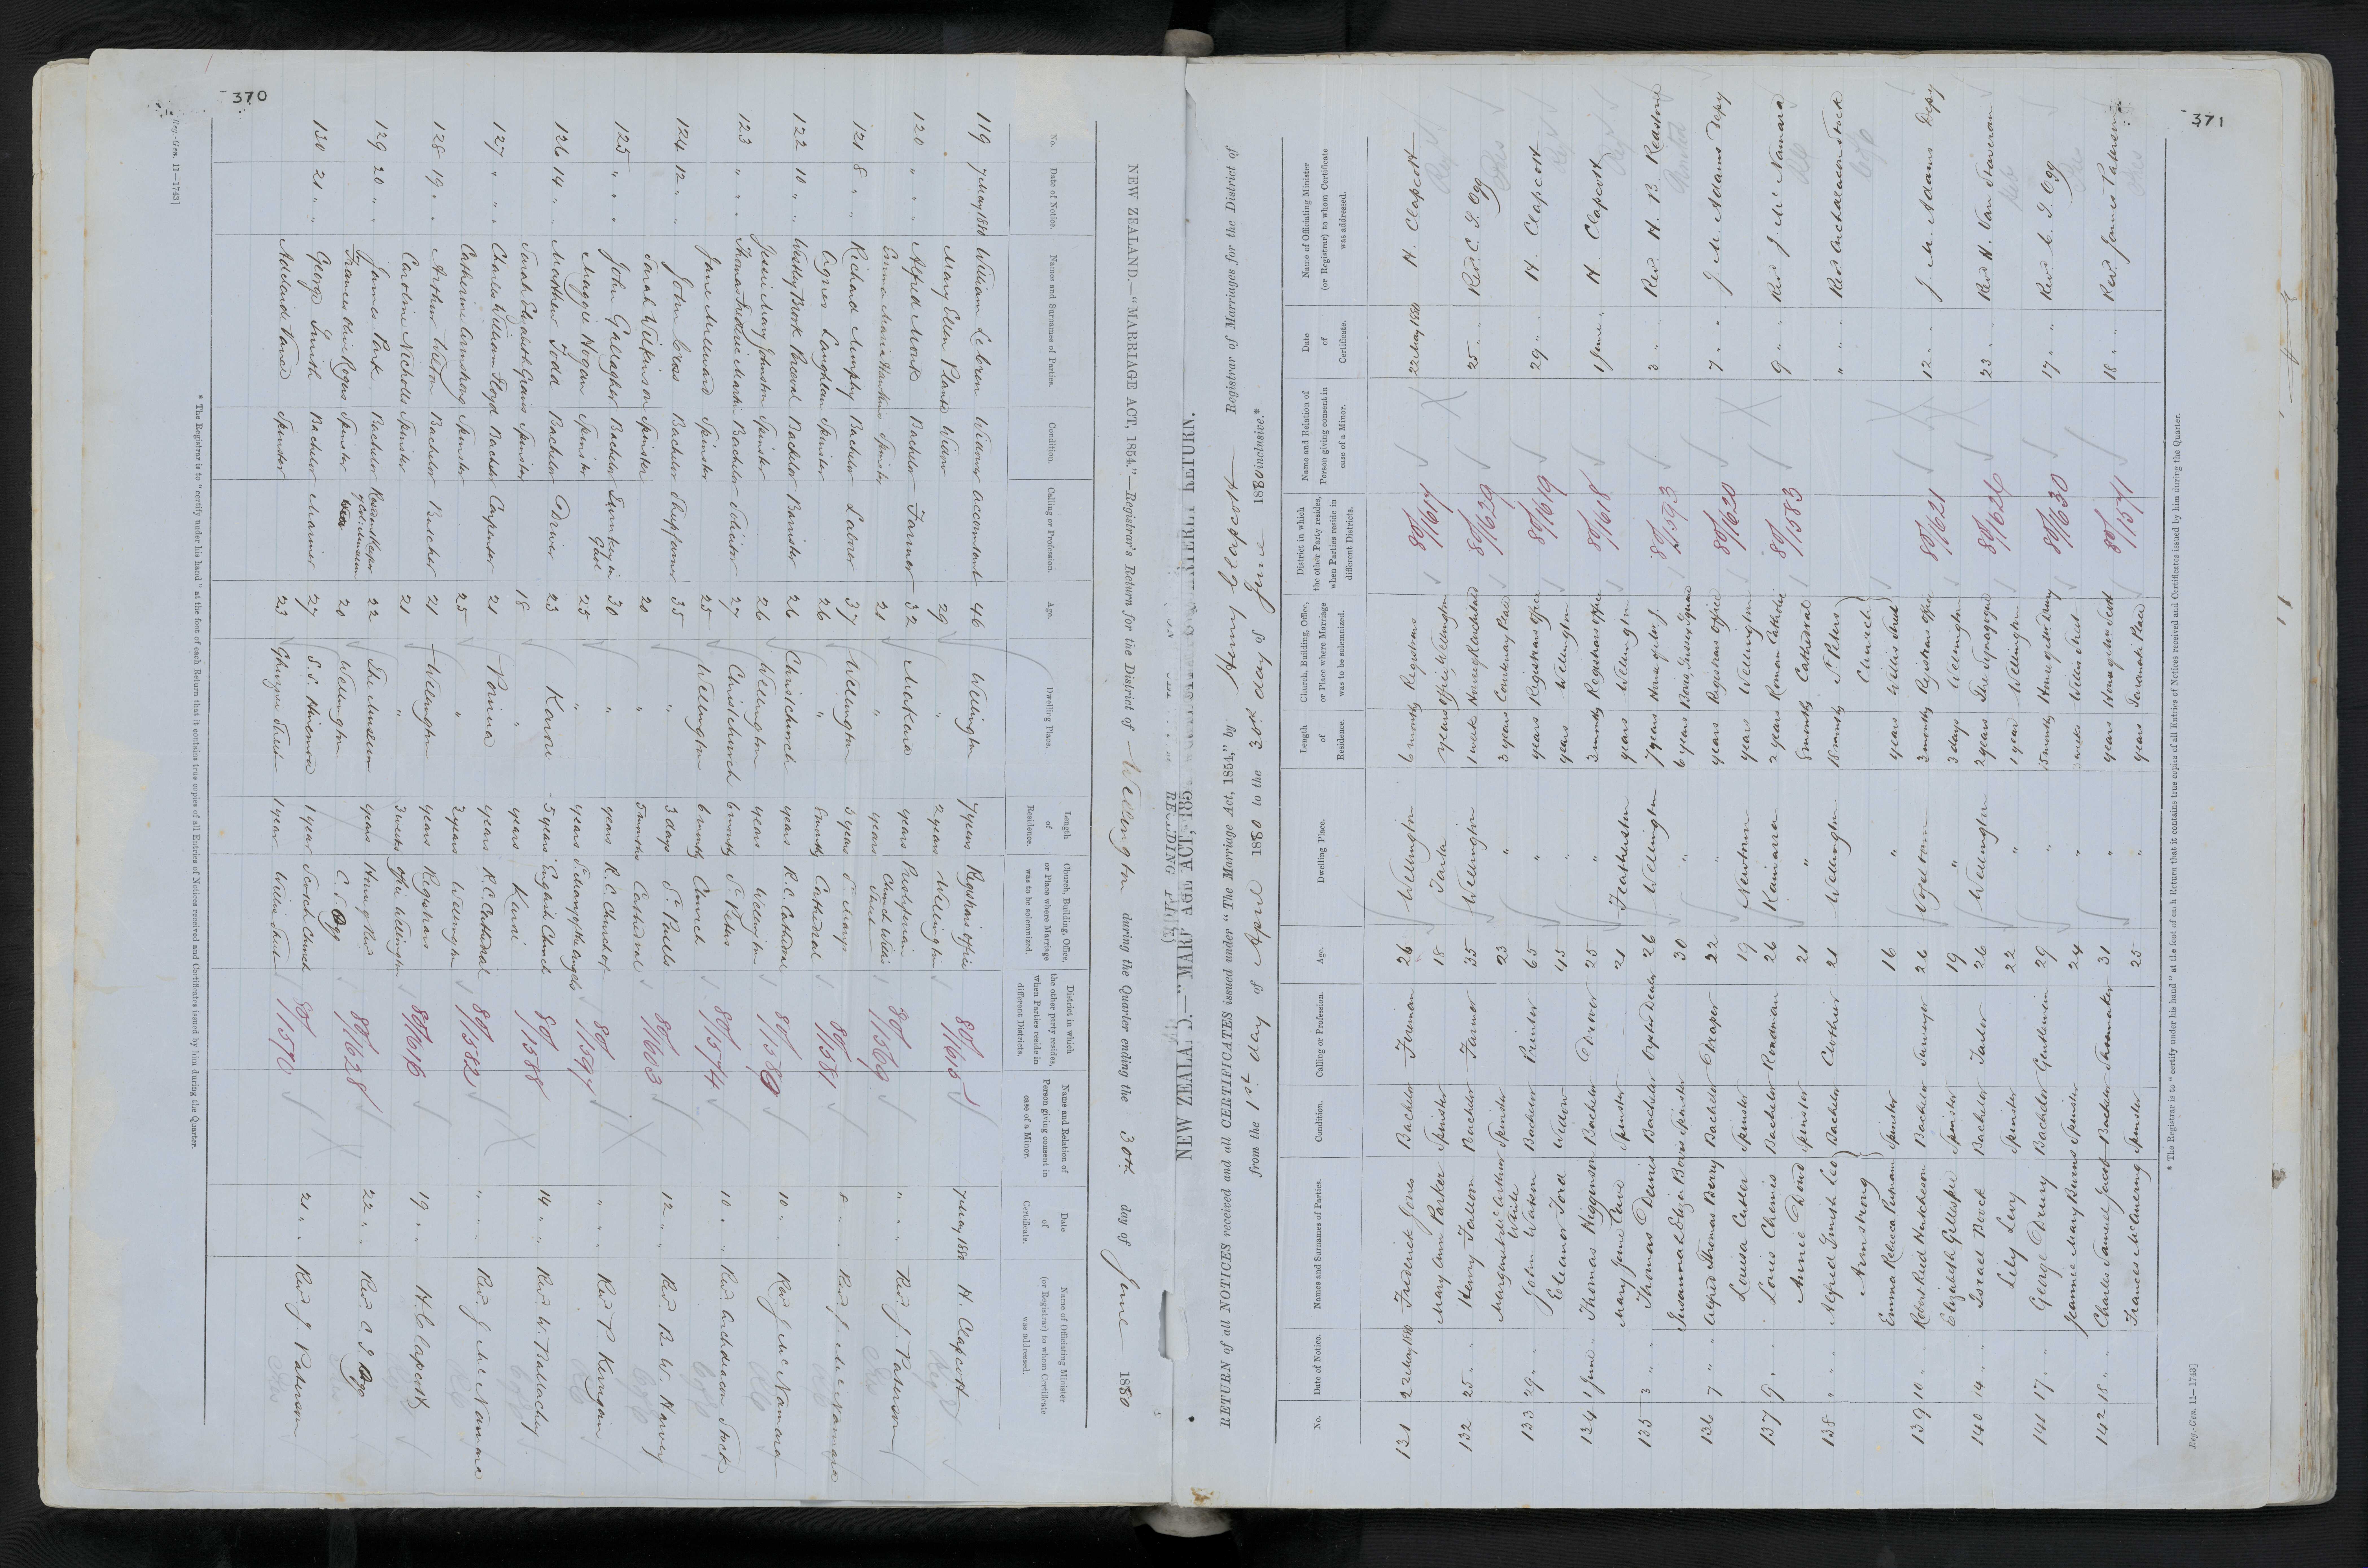 370
NEW ZEALAND.—"MARRIAGE ACT, 1854."—Registrar's Return for the District of Wellington during the Quarter ending the 30th day of June 1880
No. Date of Notice. Names and Surnames of Parties. Condition. Calling or Profession. Age. Dwelling Place. Length of Residence. Church, Building, Office, or Place where Marriage was to be solemnized. District in which the other party resides, when Parties reside in different Districts. Name and Relation of Person giving consent in case of a Minor. Date of Certificate. Name of Officiating Minister (or Registrar) to whom Certificate was addressed.
119 7 May 1880 William Widower accountant 46 Wellington 7 years Registrars office 80/1615 7 May 1880 H. Clapcott
Mary Ellen Widow 29 " 2 years Wellington
120 " " Alfred Monk Bachelor Farmer 32 Makara years Presbyterian 80/1569 " " Rev. J. Paterson
Emma Maria Hawkins Spinster 21 " years Church Willis Street
121 8 " Richard Murphy Bachelor Laborer 37 Wellington 3 years St Marys 80/1581 8 " Rev. J. McNamara
Agnes Laughlan Spinster 26 " 8 months Cathedral
122 10 " Westby Brook Perceval Bachelor Barrister 26 Christchurch years R.C. Cathedral 80/1580 10 " Rev. J. McNamara
Jessie Mary Johnston Spinster 26 Wellington years Wellington
123 " " Thomas Frederic Martin Bachelor Solicitor 27 Christchurch 6 months St. Peters 80/1574 10 " Rev. Archdeacon Stock
Jane Millward Spinster 25 Wellington 6 months Church
124 12 " John Cross Bachelor 35 " 3 days St. Pauls 80/1603 12 " Rev. B. W. Harvey
Sarah Wilkinson Spinster 20 " 5 months Cathedral
125 " " John Gallagher Bachelor Turnkey in Gaol 30 " years R.C. Church of 80/1597 " " Rev. P. Kerrigan
Maggie Hogan Spinster 25 " years St Mary of the Angels
126 14 " Matthew Todd Bachelor Driver 23 Karori 5 years English Church 80/1588 14 " Rev. W. Ballachey
Sarah Elizabeth Spinster 18 " years Karori
127 " " Charles William Floyd Bachelor Carpenter 21 Porirua years R.C. Cathedral 80/1582 " " Rev. J. McNamara
Catherine Spinster 25 " 2 years Wellington
128 19 " Arthur Bachelor Butcher 21 Wellington years Registrars 80/1616 19 " H. Clapcott
Caroline Nicholls Spinster 21 " 3 weeks office Wellington
129 20 " James Park Bachelor 22 The Museum years House of Rev 80/1628 22 " Rev. C. S. Ogg
Frances Rogers Spinster 20 Wellington C. S. Ogg
130 21 " George Smith Bachelor Mariner 27 S.S. Hinemoa 1 year Scotch Church 80/1570 21 " Rev. J. Paterson
Adelaide Vance Spinster 23 Ghuznee Street 1 year Willis Street
* The Registrar is to "certify under his hand" at the foot of each Return that it contains true copies of all Entries of Notices received and Certificates issued by him during the Quarter.
Reg.-Gen. 11—1743]
371
RETURN of all NOTICES received and all CERTIFICATES issued under "The Marriage Act, 1854," by Henry Clapcott Registrar of Marriages for the District of
from the 1st day of April 1880 to the 30th day of June 1880 inclusive.*
No. Date of Notice. Names and Surnames of Parties. Condition. Calling or Profession. Age. Dwelling Place. Length of Residence. Church, Building, Office, or Place where Marriage was to be solemnized. District in which the other Party resides, when Parties reside in different Districts. Name and Relation of Person giving consent in case of a Minor. Date of Certificate. Name of Officiating Minister (or Registrar) to whom Certificate was addressed.
131 22 May 1880 Frederick Jones Bachelor Foreman 26 Wellington 6 months Registrars 80/1617 22 May 1880 H. Clapcott
Mary Ann Parker Spinster 18 Taita years office Wellington
132 25 " Henry Fallon Bachelor Farmer 35 Wellington 1 week 80/1629 25 " Rev. C. S. Ogg
Margaret McArthur White Spinster 23 " 3 years Courtenay Place
133 29 " John Watson Bachelor Printer 65 " years Registrars Office 80/1619 29 " H. Clapcott
Eleanor Ford Widow 45 " years Wellington
134 1 June " Thomas Higginson Bachelor Drover 25 " 3 months Registrars office 80/1618 1 June " H. Clapcott
Mary Jane Cave Spinster 21 Featherston years Wellington
135 3 " Thomas Dennis Bachelor Oyster Dealer 26 Wellington 7 years House of Rev. 80/1593 3 " Rev. H. B. Redstone
Susannah Eliza Bowis Spinster 30 " 6 years
136 7 " Alfred Thomas Berry Bachelor Draper 22 " years Registrars Office 80/1620 7 " J. M. Adams Depy
Louisa Cutler Spinster 19 Newtown years Wellington
137 9 " Louis Chemis Bachelor Roadman 26 Kaiwarra 2 years Roman Catholic 80/1583 9 " Rev. J. McNamara
Annie Dowd Spinster 21 " 8 months Cathedral
138 " " Alfred Gurnish Leo Armstrong Bachelor Clothier 21 Wellington 18 months St Peters Church " " Rev Archdeacon Stock
Emma Rebecca Putnam Spinster 16 " years Willis Street
139 10 " Robert Reid Hutcheson Bachelor Surveyor 26 Vogeltown 3 months Registrars Office 80/1621 12 " J. M. Adams Depy
Elizabeth Gillespie Spinster 19 " 3 days Wellington
140 14 " Israel Boock Bachelor Tailor 26 Wellington 2 years The Synagogue 80/1626 23 " Rev H. Van Staveren
Lily Levy Spinster 22 " 1 year Wellington
141 17 " George Drury Bachelor Gentleman 29 " 15 months House of Mr Drury 80/1630 17 " Rev C. S. Ogg
Jeannie Mary Burns Spinster 24 " weeks Willis Street
142 18 " Charles Samuel Jacob Bachelor Shoemaker 31 " years House of Mr Scott 80/1571 18 " Rev. James Paterson
Frances McEnering Spinster 25 " years Taranaki Place
* The Registrar is to "certify under his hand" at the foot of each Return that it contains true copies of all Entries of Notices received and Certificates issued by him during the Quarter.
Reg.-Gen. 11—1743]